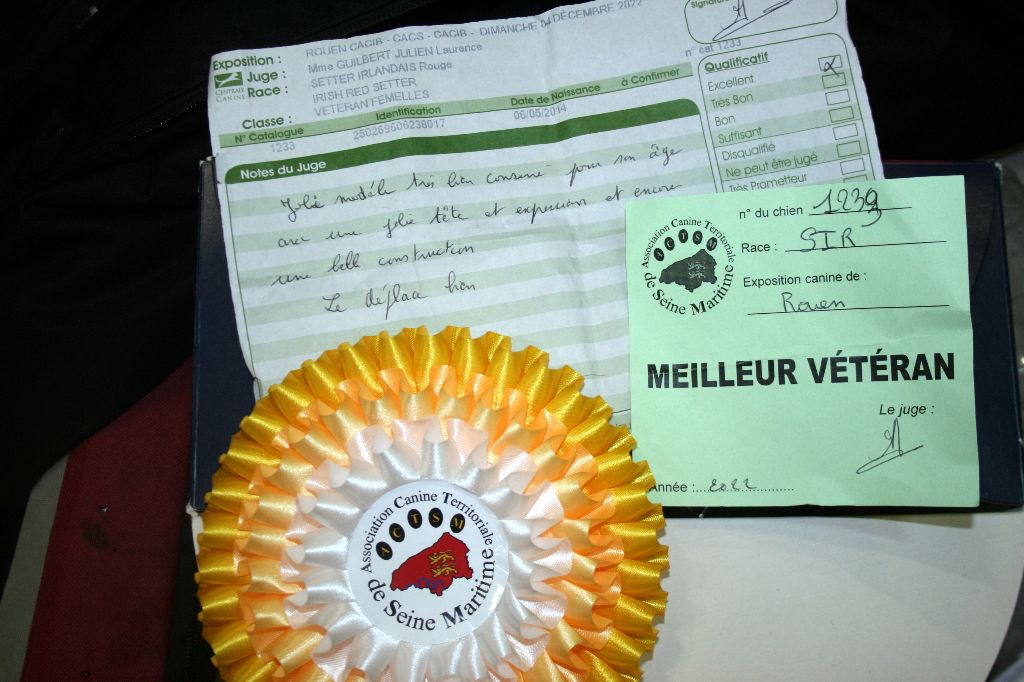 Signature
Exposition : ROUEN CACIB - CACS - CACIB - DIMANCHE 04 DÉCEMBRE 2022
Juge : Mme GUILBERT JULIEN Laurence
Race : SETTER IRLANDAIS Rouge
IRISH RED SETTER
CENTRALE CANINE
Classe : VETERAN FEMELLES
n° cat 1233
N° Catalogue Identification Date de Naissance à Confirmer
1233 250269606238017 06/05/2014
Qualificatif
Excellent
Très Bon
Bon
Suffisant
Disqualifié
Ne peut être jugé
Très Prometteur
Notes du Juge
Jolie modèle très bien conservé pour son âge
avec une jolie tête et expression et encore
une belle construction
Se déplace bien
Association Canine Territoriale
ACTSM
de Seine Maritime
n° du chien 1233
Race : SIR
Exposition canine de :
Rouen
MEILLEUR VÉTÉRAN
Le juge :
Année : 2022
Association Canine Territoriale
ACTSM
de Seine Maritime